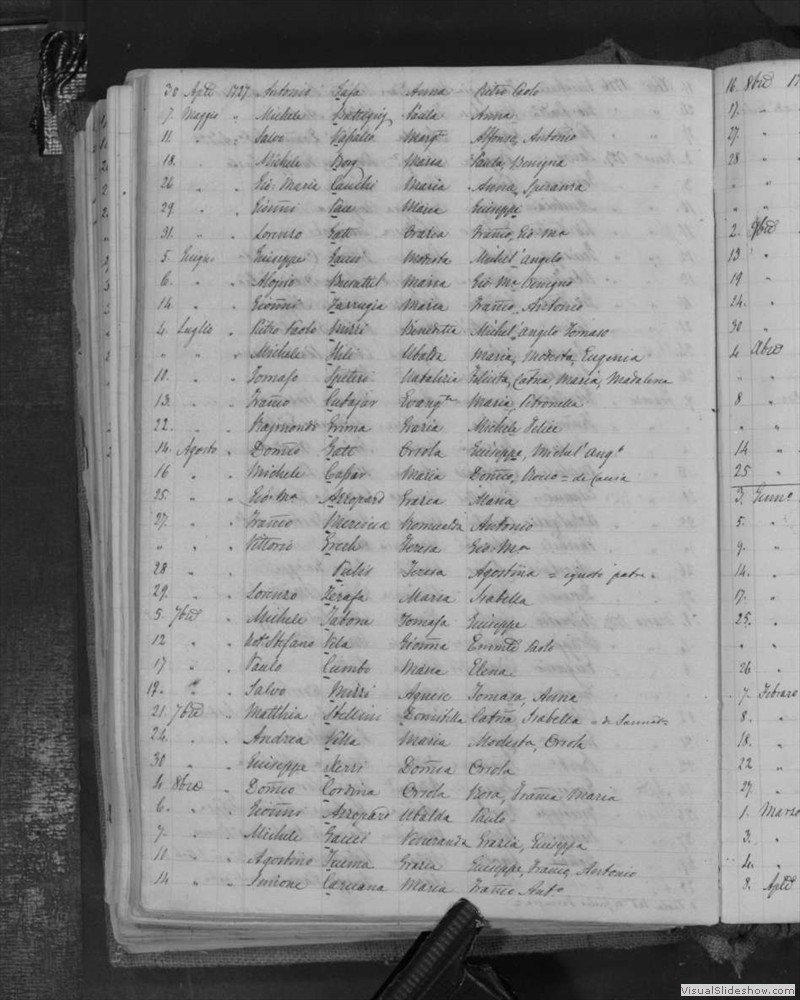 30 Aple 1727 Antonio Anna Pietro Paolo
7. Maggio " Michele Paola Anna
11 " " Salvo Vassallo Marg.a Alfonso, Antonio
18. " " Michele Borg Maria Paula, Benigna
26 " " Gio: Maria Cauchi Maria Anna, Speranza
29. " " Giõni Pace Maria Giuseppe
31. " " Lorenzo Gatt Grazia Franco, Gio M.a
5. Giugno " Giuseppe Gauci Modesta Michel'angelo
6. " " Aloisio Maria Gio M.a Benigno
14. " " Giõni Farrugia Maria Franco, Antonio
4. Luglio " Pietro Paolo Mizzi Benedetta Michel'angelo Tomaso
" " " Michele Ubalda Maria, Modesta, Eugenia
10. " " Tomaso Spiteri Natalizia Catna, Maria, Madalena
13. " " Franco Cutajar Evang.ta Maria, Petronella
22. " " Raimondo Grima Grazia Michele Felice
14. Agosto " Domco Gatt Orsola Giuseppe, Michel'Ang.o
16 " " Michele Maria Domco, Rocco =
25. " " Gio M.a Azzopard Grazia Maria
27. " " Franco Mercieca Romualda Antonio
" " " Vittorio Grech Teresa Gio M.a
28 " " Pulis Teresa Agostina = ignoto patre =
29. " " Lorenzo Zerafa Maria Isabella
5. 7bre " Michele Tabone Tomasa Giuseppe
12 " " Not. Stefano Vela Giõna Paolo
17 " " Paulo Cumbo Maria Elena
19. " " Salvo Mizzi Agnese Tomasa, Anna
21. 7bre " Matthia Stellini Domitilla Catna, Isabella
24. " " Andrea Vella Maria Modesta, Orsola
30 " " Giuseppe Domca Orsola
4 8bre " Domco Cordina Orsola Rosa, Franca Maria
6. " " Giõni Azzopard Ubalda Paulo
7. " " Michele Gauci Veneranda Grazia, Giuseppa
11 " " Agostino Grazia Giuseppe, Franco, Antonio
14 " " Simone Caruana Maria Franco Ant.o
16. 8bre 17
17. "
27. "
28 "
" "
" "
2. 9bre
13 "
19 "
24. "
30 "
4 Xbre
" "
8 "
" "
14 "
25 "
3. Genn.o
5. "
9. "
14. "
17. "
25. "
" "
26 "
7. Febraro
8. "
18. "
22 "
27. "
1. Marzo
3. "
4. "
8. Aple
VisualSlideshow.com